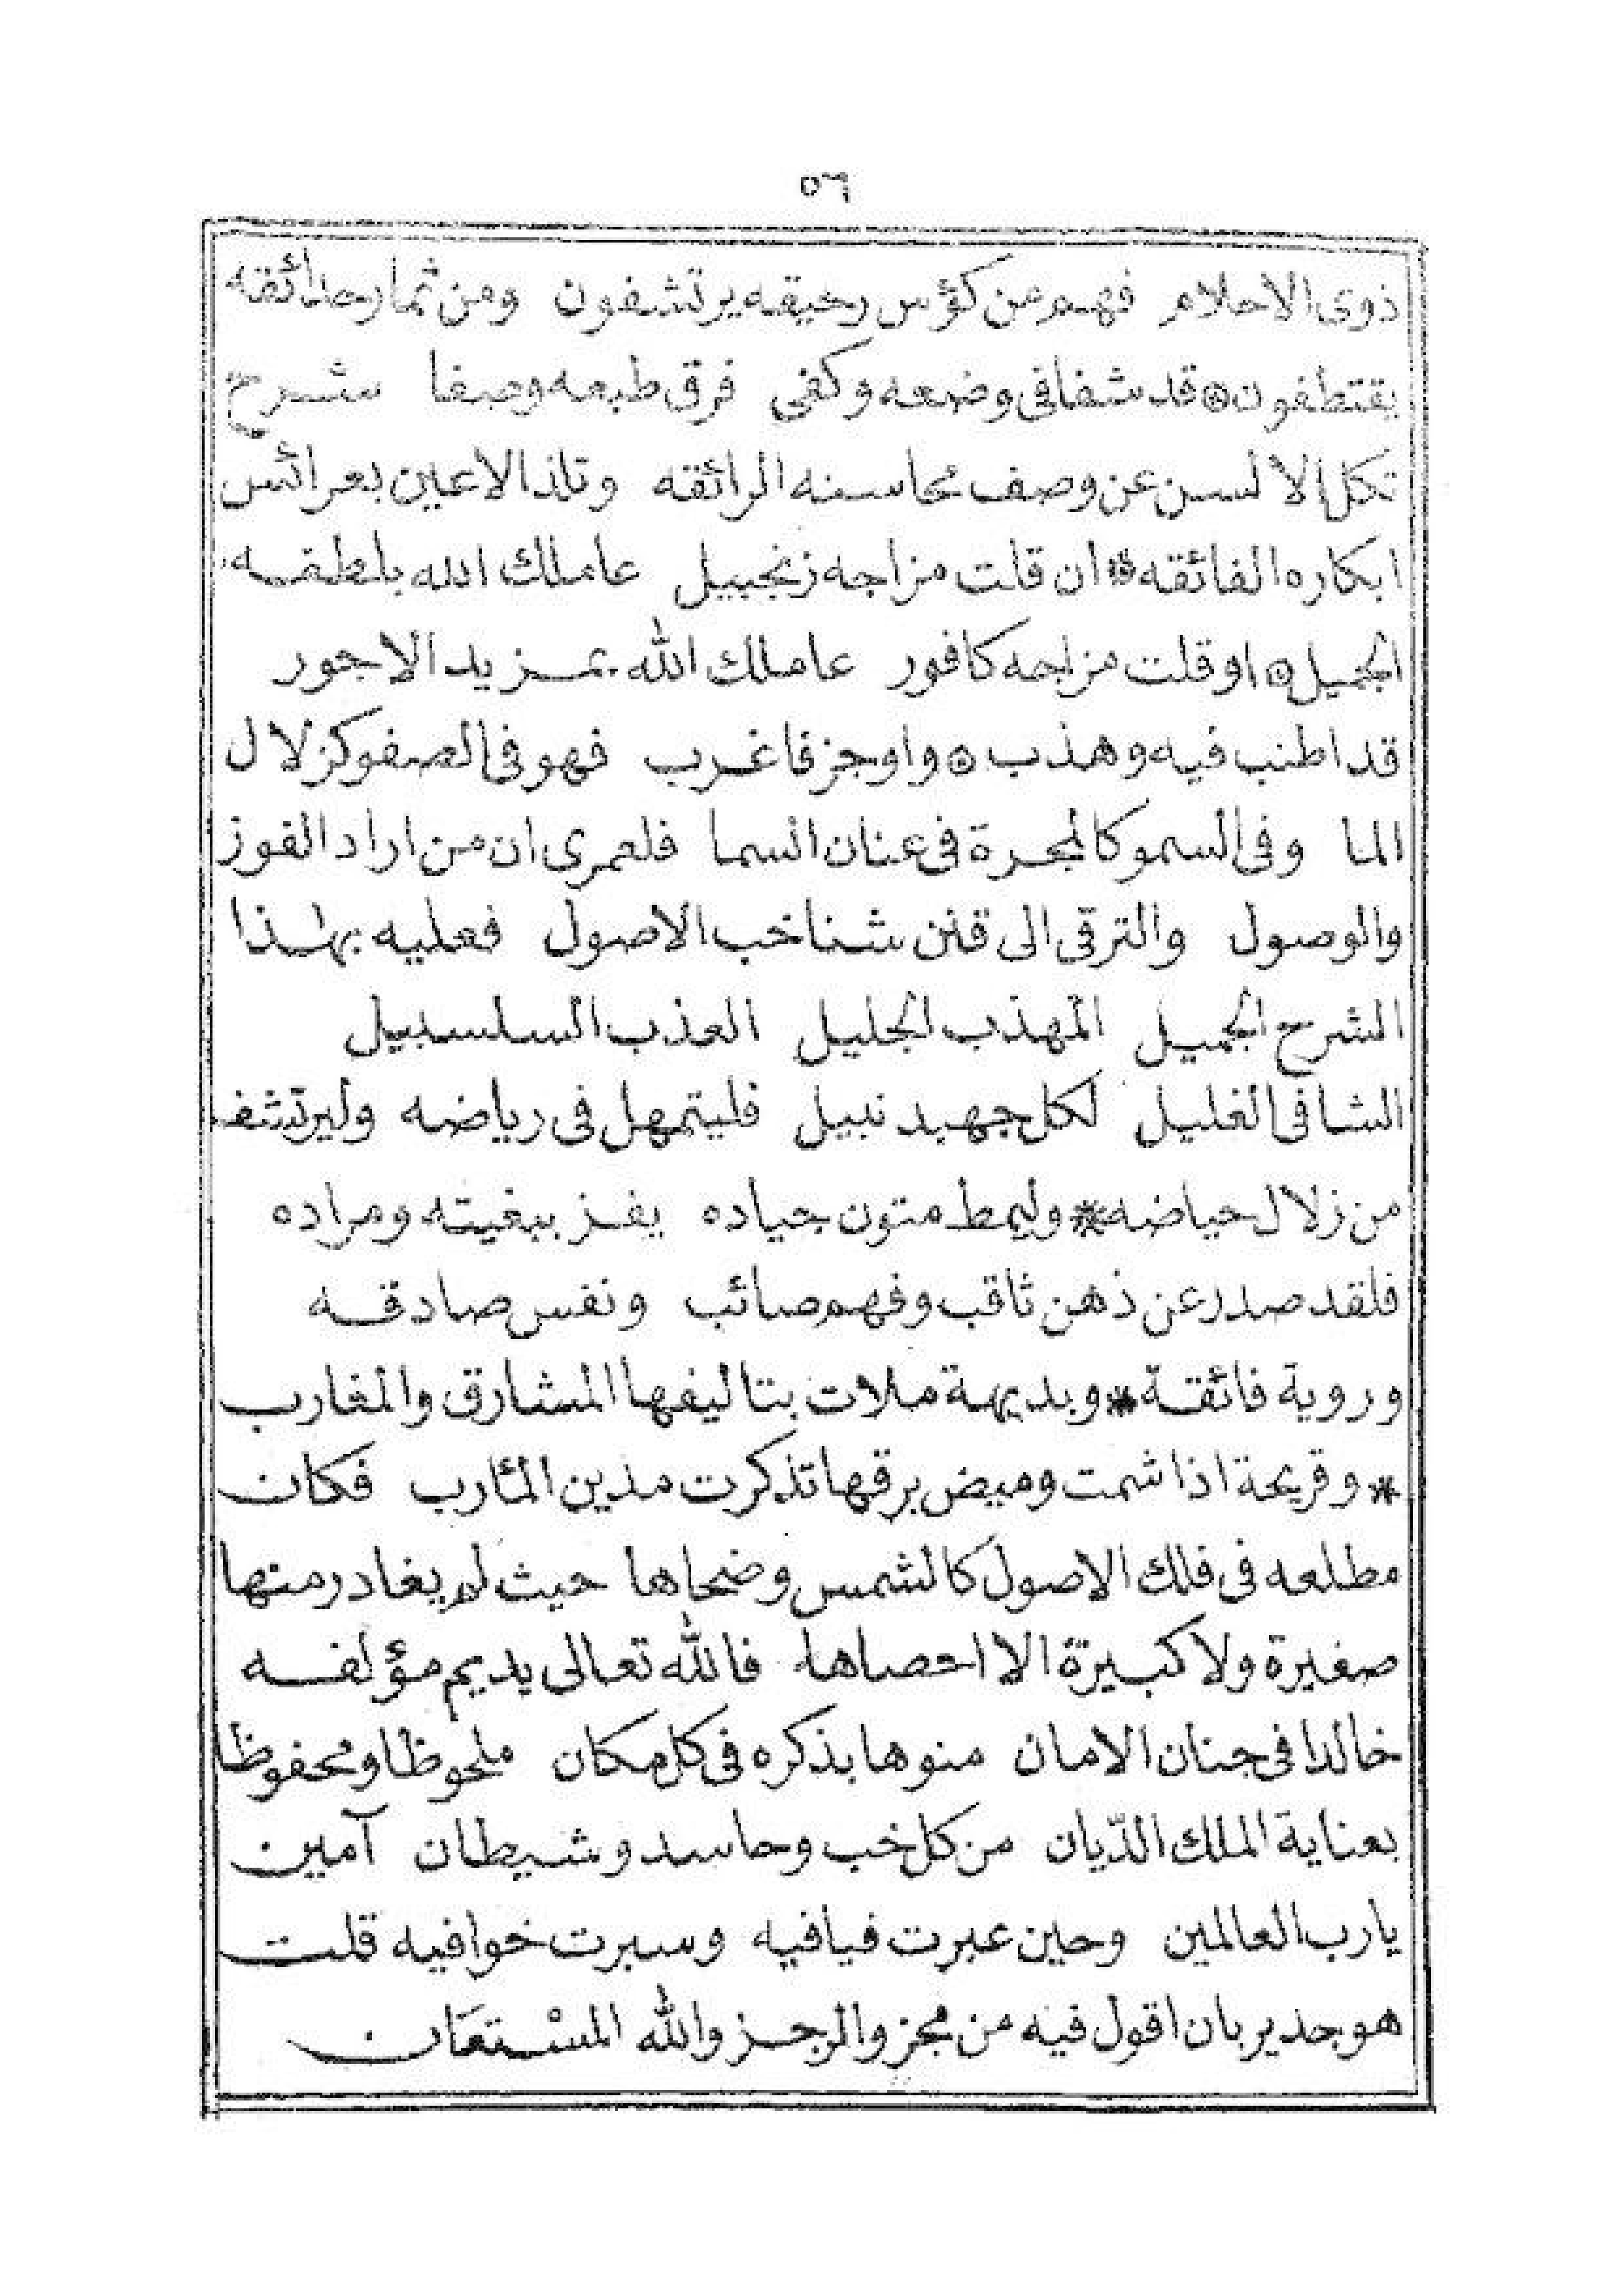 ٥٦
ذوى الاحلام فهم من كؤس رحيقه يرتشفون ومن ثمار حدائقه
يقتطفون قد شفا فى وضعه وكفى فرق طبعه وصفا شرح
تكل الالسن عن وصف محاسنه الرائقه وتلذ الاعين بعرائس
ابكاره الفائقه ان قلت مزاجه زنجبيل عاملك الله بلطفه
الجميل او قلت مزاجه كافور عاملك الله بمزيد الاجور
قد اطنب فيه وهذب واوجز فاغرب فهو فى الصفو كزلال
الما وفى السمو كالمجرة فى عنان السما فلعمرى ان من اراد الفوز
والوصول والترقى الى قنن شناخب الاصول فعليه بهذا
الشرح الجميل المهذب الجليل العذب السلسبيل
الشافى الغليل لكل جهبد نبيل فليتمهل فى رياضه وليرتشف
من زلال حياضه * وليمط متون جياده يفز ببغيته ومراده
فلقد صدر عن ذهن ثاقب وفهم صائب ونفس صادقه
وروية فائقة * وبديهة ملات بتاليفها المشارق والمغارب
* وقريحة اذا شمت وميض برقها تذكرت مذين المأرب فكان
مطلعه فى فلك الاصول كالشمس وضحاها حيث لم يغادر منها
صغيرة ولا كبيرة الا احصاها فالله تعالى يديم مؤلفه
خالدا فى جنان الامان منوها بذكره فى كل مكان ملحوظا ومحفوظا
بعناية الملك الدّيان من كل خب وحاسد وشيطان آمين
يارب العالمين وحين عبرت فيافيه وسبرت خوافيه قلت
هو جدير بان اقول فيه من مجزو الرجز والله المسْتعَان